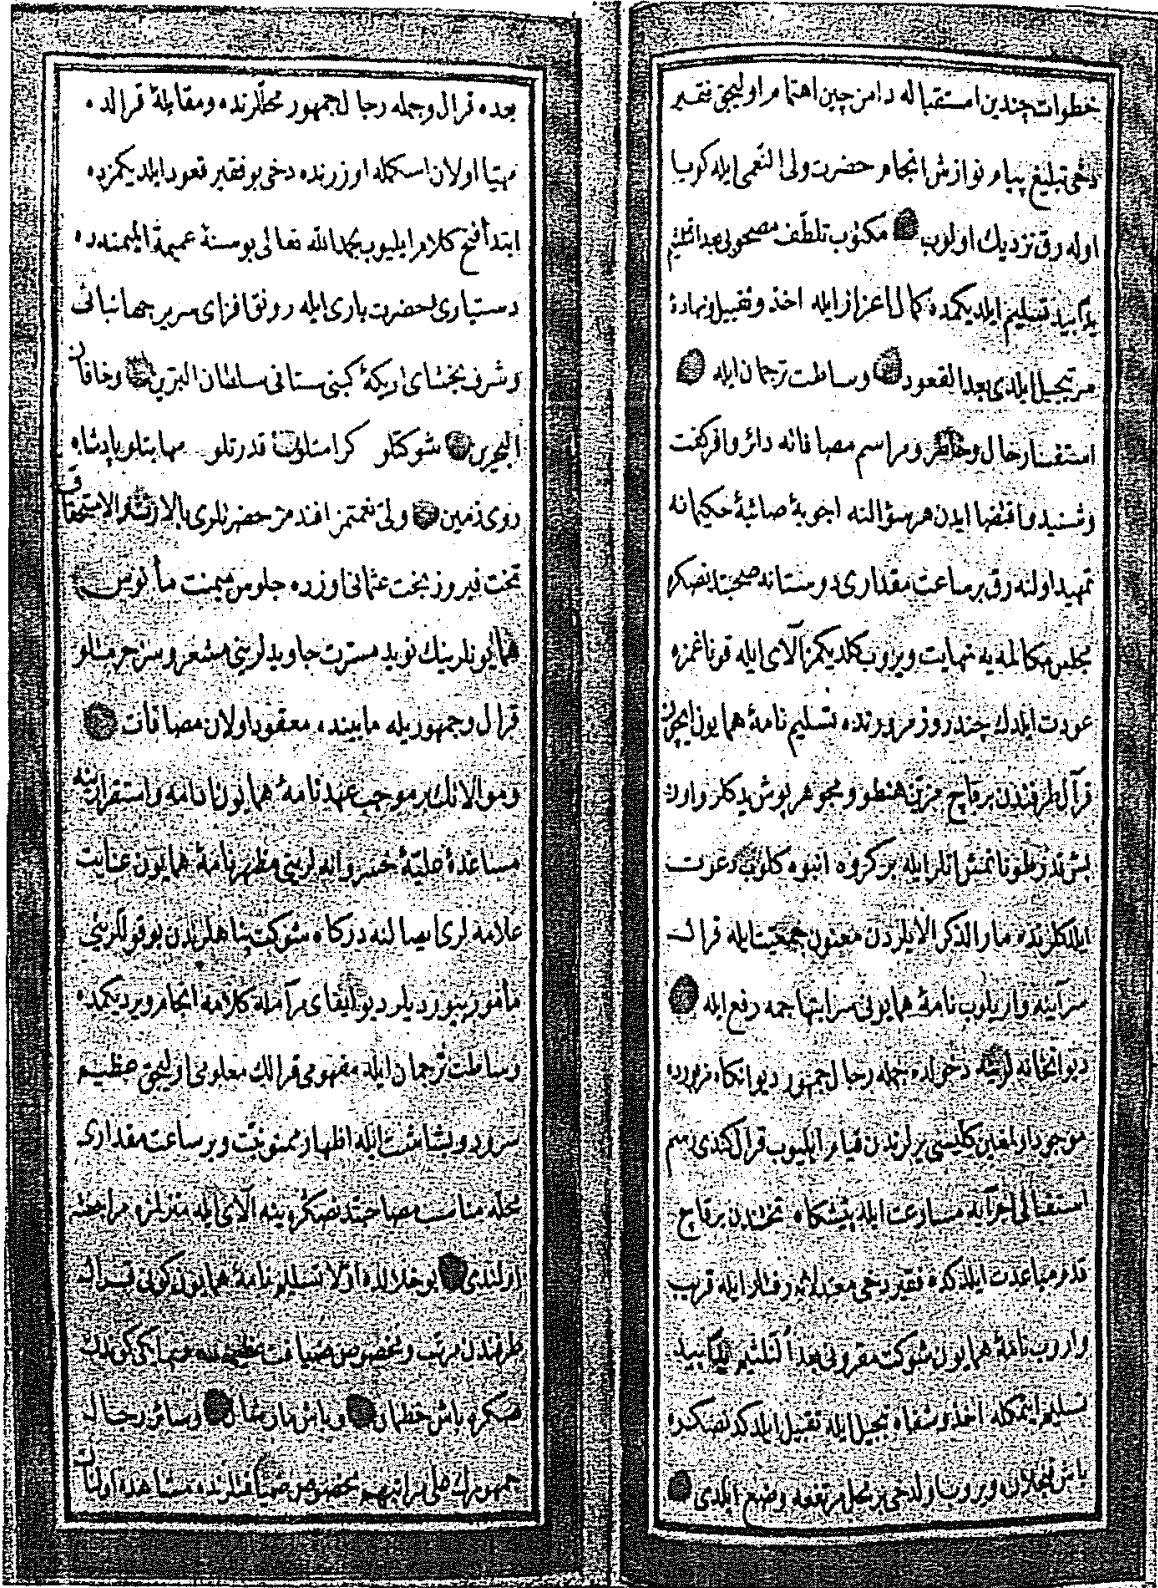 خطوات چندین استقباله دامن چین اهتمام اولیجق فقیر
دخی تبلیغ پیام نوازش انجام حضرت ولی النعمی ایله کویا
اوله رق نزدیك اولوب مکتوب تلطف مصحوبی بعد التلثیم
یدا بید تسلیم ایلدیکمده کمال اعزاز ایله اخذ و تقبیل و نهاده
سر تبجیل ایلدی بعد القعود وساطت ترجمان ایله
استفسار حال و خاطر و مراسم مصافاته دائر وافر کفت
و شنید و اقتضا ایدن هر سؤالنه اجوبهٔ صائبهٔ حکیمانه
تمهید اولنه رق بر ساعت مقداری دوستانه صحبتدنصکره
مجلس مکالمه یه نهایت ویروب کلدیکمز آلای ایله قوناغمزه
عودت ایلدك چند روز مرورنده تسلیم نامهٔ همایون ایچون
قرال طرفندن بر قاچ مزین هنطو و مجوهر پوش یدکلر و اون
بش قدر طوناتمش اتلر ایله بر کروه انبوه کلوب دعوت
ایلدکلرنده مار الذکر الایلردن معنون جمعیتله قرالك
سراینه واریلوب نامهٔ همایونی سر ابتهاجمه رفع ایله
دیوانخانه لرینه دخولده جمله رجال جمهور دیوانکاه مزبورده
موجود اولمغین کلیسی یرلرندن قیام ایلیوب قرال کندی رسم
استقبالی اجرایه مسارعت ایله پیشکاه تختندن بر قاچ
قدم مباعدت ایلدکده فقیر دخی معتدلانه رفتار ایله قریب
واروب نامهٔ همایون شوکت مقرونی بعد التلثیم یدا بید
تسلیم ایتمکله اخذ و شفاه تبجیل ایله تقبیل ایلدکدنصکره
باش ویروب اولدخی بر محل مرتفعه وضع ایلدی
بعده قرال و جمله رجال جمهور محللرنده و مقابلهٔ قرالده
مهیا اولان اسکمله اوزرنده دخی بو فقیر قعود ایلدیکمزده
ابتدا فتح کلام ایلیوب بحمد الله تعالی بو سنهٔ عمیمة المیمنه ده
دستیاری حضرت باری ایله رونق افزای سریر جهانبانی
و شرف بخشای اریکهٔ کیتی ستانی سلطان البرین و خاقان
البحرین شوکتلو کرامتلو قدرتلو مهابتلو پادشاه
روی زمین ولی نعمتمز افندمز حضرتلری بالارث والاستحقاق
تخت فیروز بخت عثمانی اوزره جلوس میمنت مأنوس
همایونلرینك نوید مسرت جاویدلرینی مشعر و سز حرمتلو
قرال و جمهوریله مابینده معقود اولان مصافات
و موالاتك بر موجب عهدنامهٔ همایون ابقا و استقرارینه
مساعدهٔ علیهٔ خسروانه لرینی مظهر نامهٔ همایون عنایت
علامه لری ایصالنه درکاه شوکتپناهلرندن بو قوللرینی
مأمور بیوردیلر دیو ایفای مرامله کلامه انجام ویردیکمده
وساطت ترجمان ایله مفهومی قرالك معلومی اولیجق عظیم
سرور و بشاشت ایله اظهار ممنونیت و بر ساعت مقداری
محله مناسب مصاحبتدنصکره ینه آلای ایله منزلمزه مراجعت
اولندی بو خلالده اولا تسلیم نامهٔ همایون کونی قرال
طرفندن مرتب و مخصوص ضیافت عظیمه و ایکی کوندن
صکره باش خطمان و باش مارشال و سائر رجال
جمهورك علی مراتبهم مخصوص ضیافتلرنده مشاهده اولنان